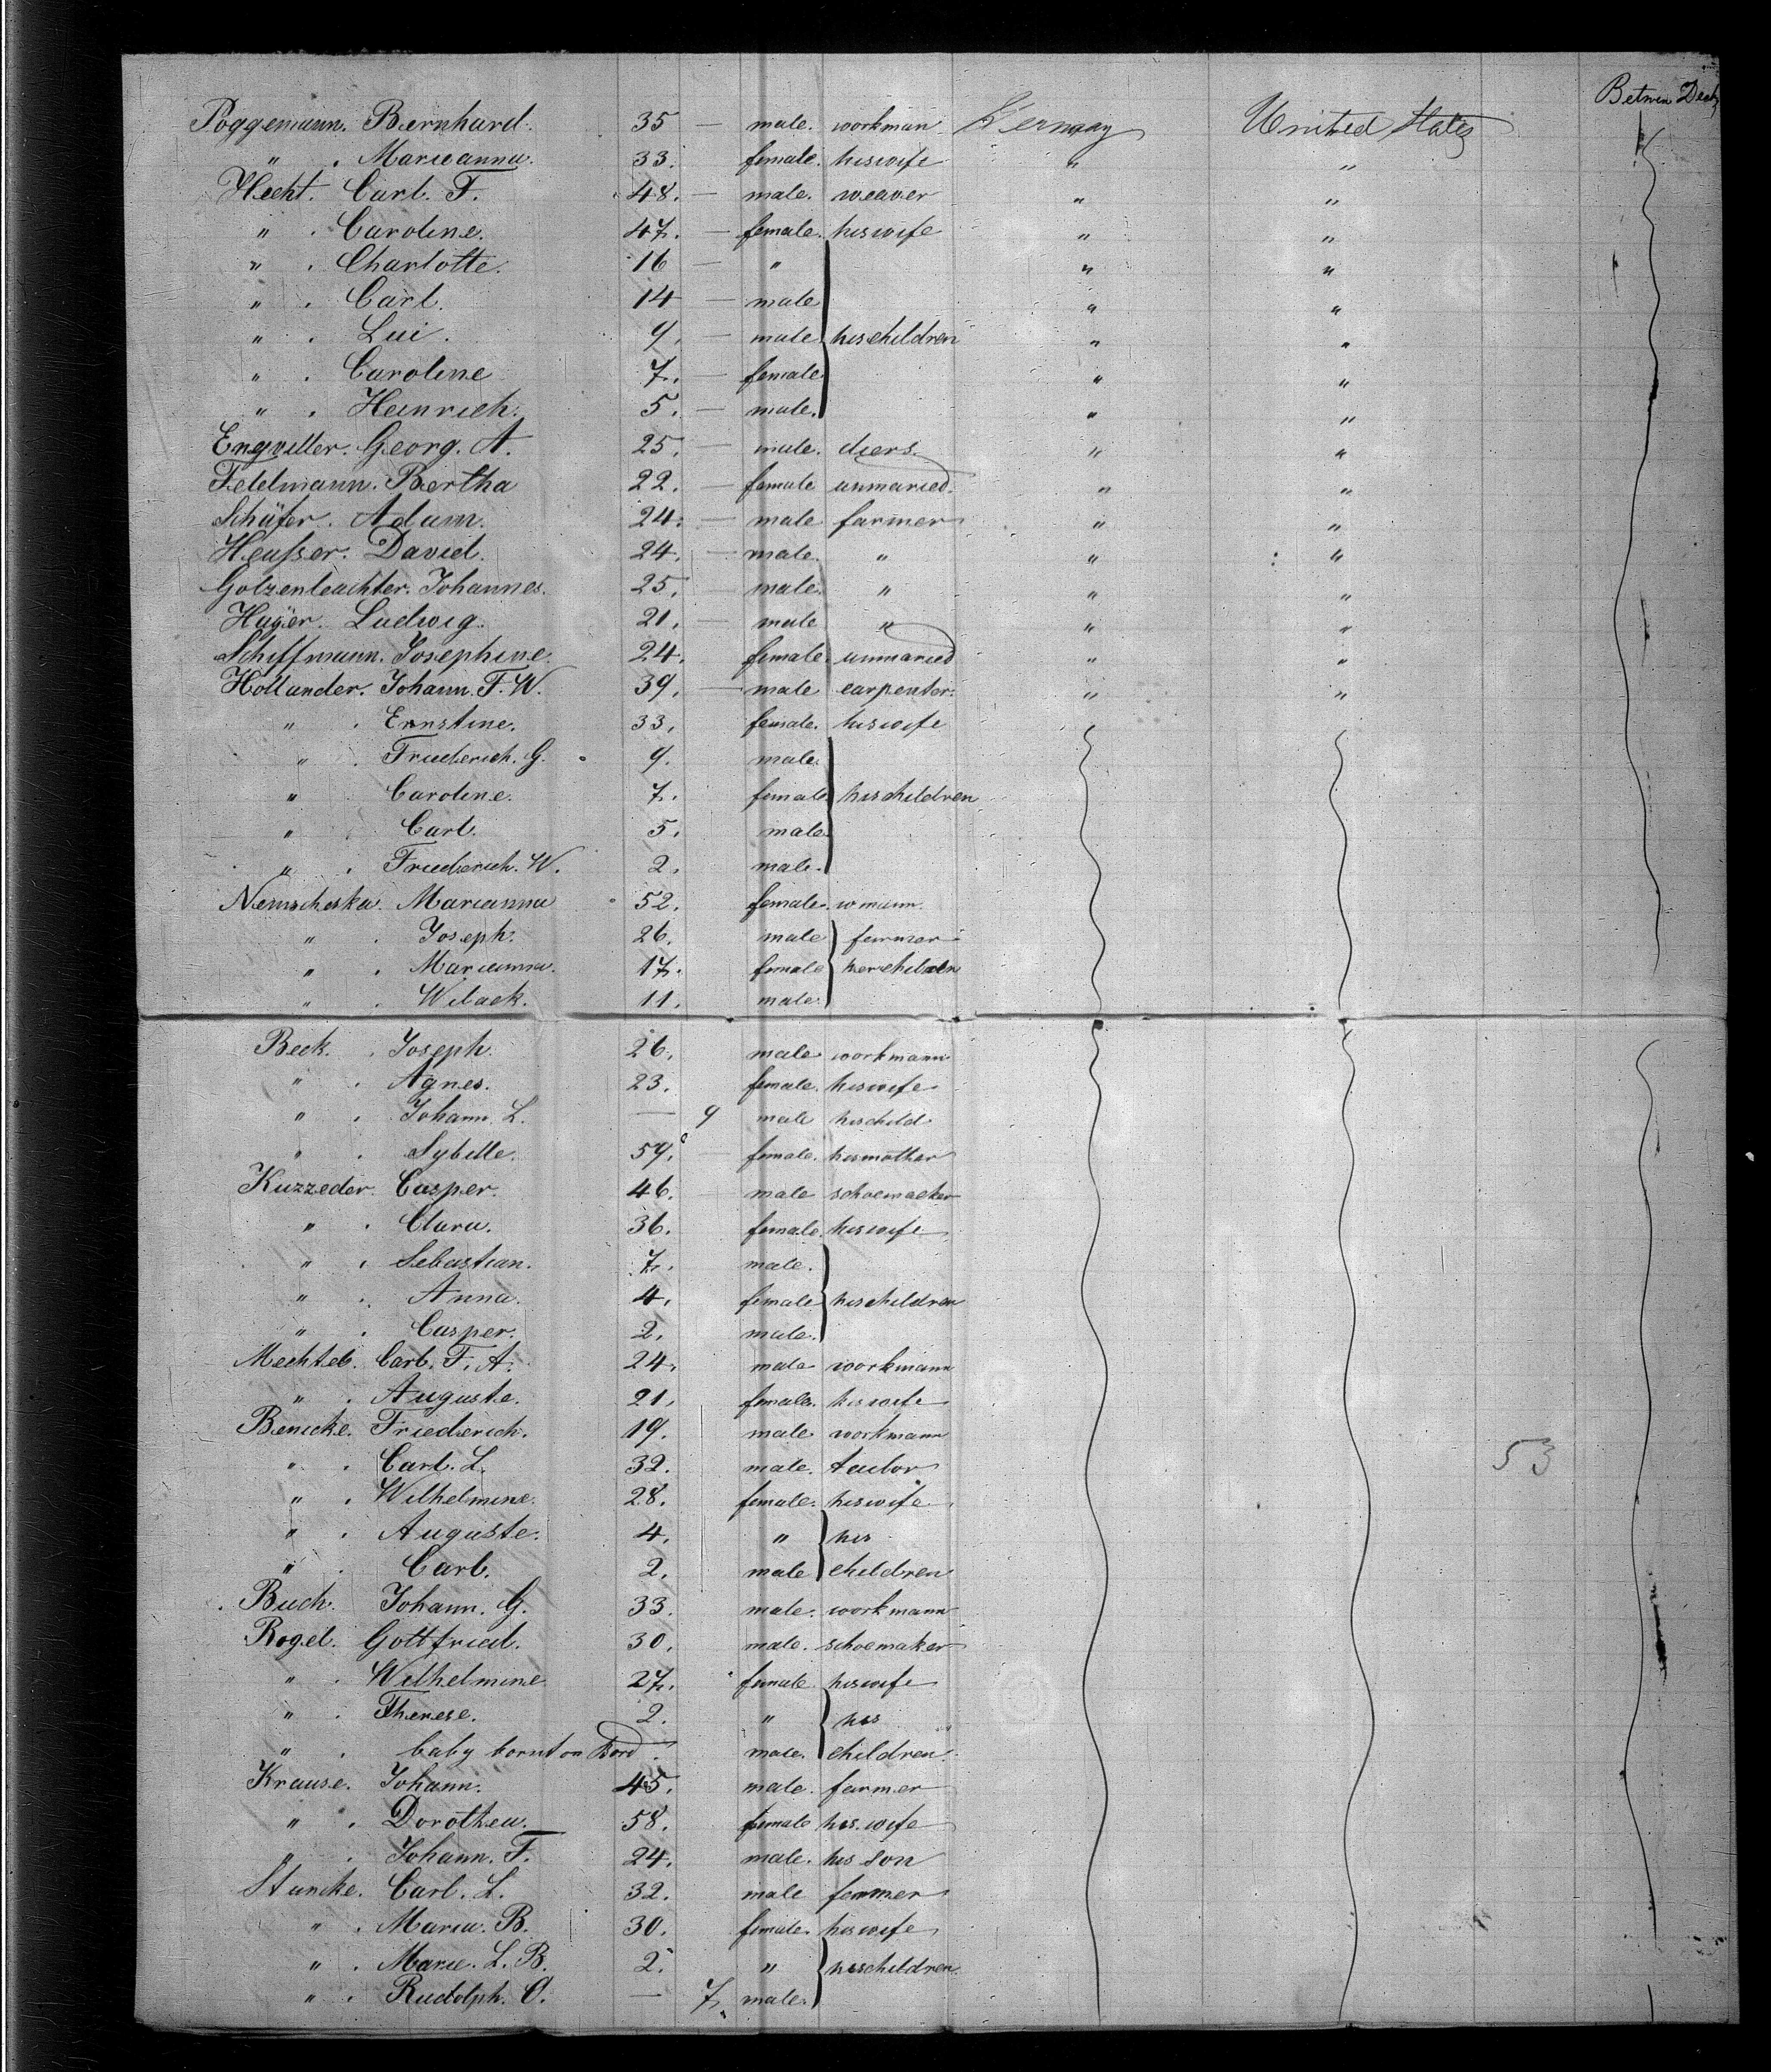 Betwen Deck
Poggemann. Bernhard. 35 — male. workman Germany United States
" . Marieanna. 33. female. his wife " "
Hecht. Carl. F. 48. — male. weaver " "
" . Caroline. 47. — female. his wife " "
" . Charlotte. 16 — " " "
" . Carl. 14 — male " "
" . Lui. 9. — male his children " "
" . Caroline 7. — female " "
" . Heinrich. 5. — male. " "
Georg. A. 25. — male. " "
Feldmann. Bertha 22. — female unmaried. " "
Schäfer. Adam. 24. — male farmer " "
Heusser. David. 24. — male. " " "
Johannes. 25. male. " " "
Ludwig. 21. — male " " "
Schiffmann. Josephine. 24. female. unmaried " "
Hollander. Johann. F. W. 39. — male carpenter. " "
" . Ernstine. 33. female. his wife
" . Friederich. G. 9. male.
" . Caroline. 7. female his children
" Carl. 5. male.
" . Friederich. W. 2. male.
Marianna 52. female. wmann.
" . Joseph. 26. male farmer
" . Marianna. 17. female her children
" . 11. male.
Beck. . Joseph. 26. male workmann
" . Agnes. 23. female. his wife
" . Johann. L. — 9 male his child
" . Sybille. 57. female. his mother
Kuzzeder. Casper. 46. male schoemacker
" . Clara. 36. female. his wife
" . Sebastian. 7. male.
" . Anna. 4. female his children
" . Casper. 2. male.
Carl. F. A. 24. male workmann
" . Auguste. 21. female. his wife
Benicke. Friederich. 19. male workmann
" . Carl. L. 32. male. tailor 53
" . Wilhelmine. 28. female. his wife
" . Auguste. 4. " his
" . Carl. 2. male children
Buch. Johann. G. 33. male. workmann
Rogel. Gottfried. 30. male. schoemaker
" . Wilhelmine 27. female his wife
" . Therese. 2. " his
" . baby born on Bord. male. children.
Krause. Johann. 45. male. farmer
" . Dorothea. 58. female his wife
" . Johann. F. 24. male. his son
Carl. L. 32. male farmer
" . Maria. B. 30. female. his wife
" . Marie. L. B. 2. " his children
" . Rudolph. O. — 7. male.